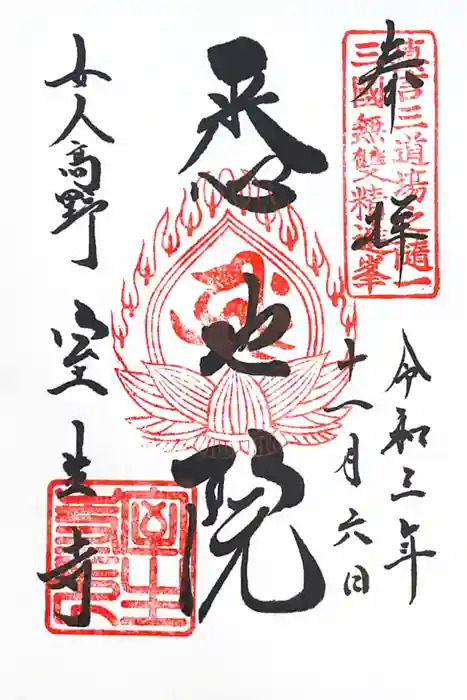 奉拝
真言三道場之隨一
三國無雙精進峯
令和三年
十一月六日
悉地院
女人高野 室生寺